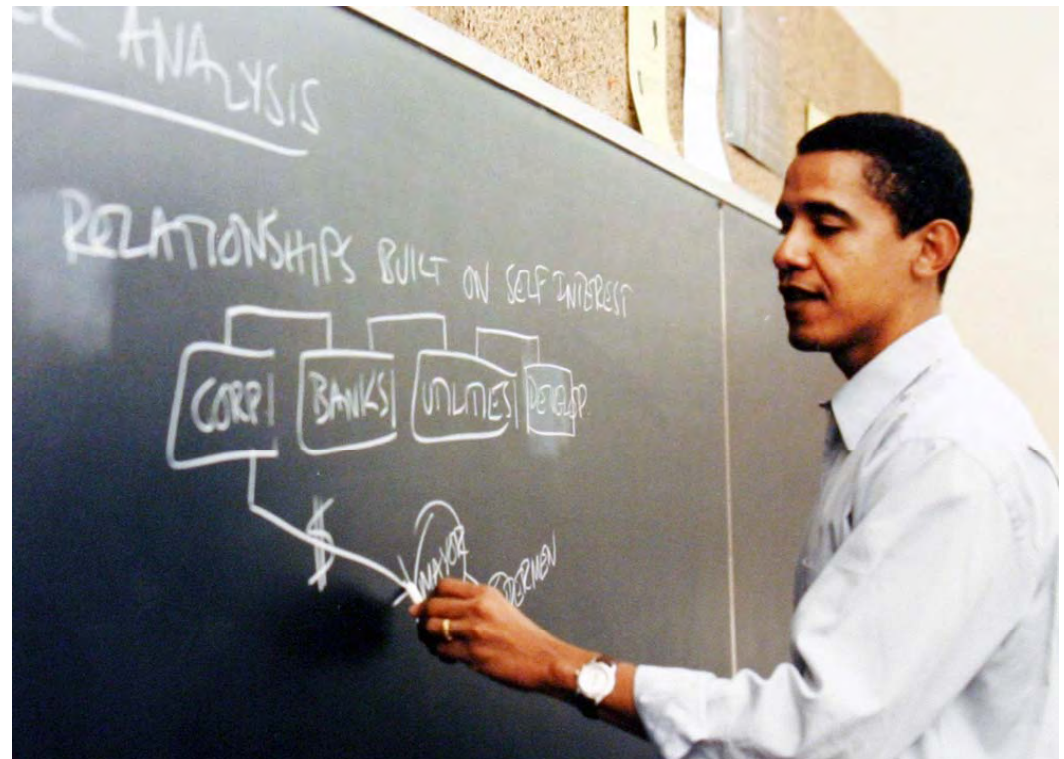 ANALYSIS
RELATIONSHIPS BUILT ON SELF INTEREST
CORP. BANKS UTILITIES DEVELOP.
$ MAYOR